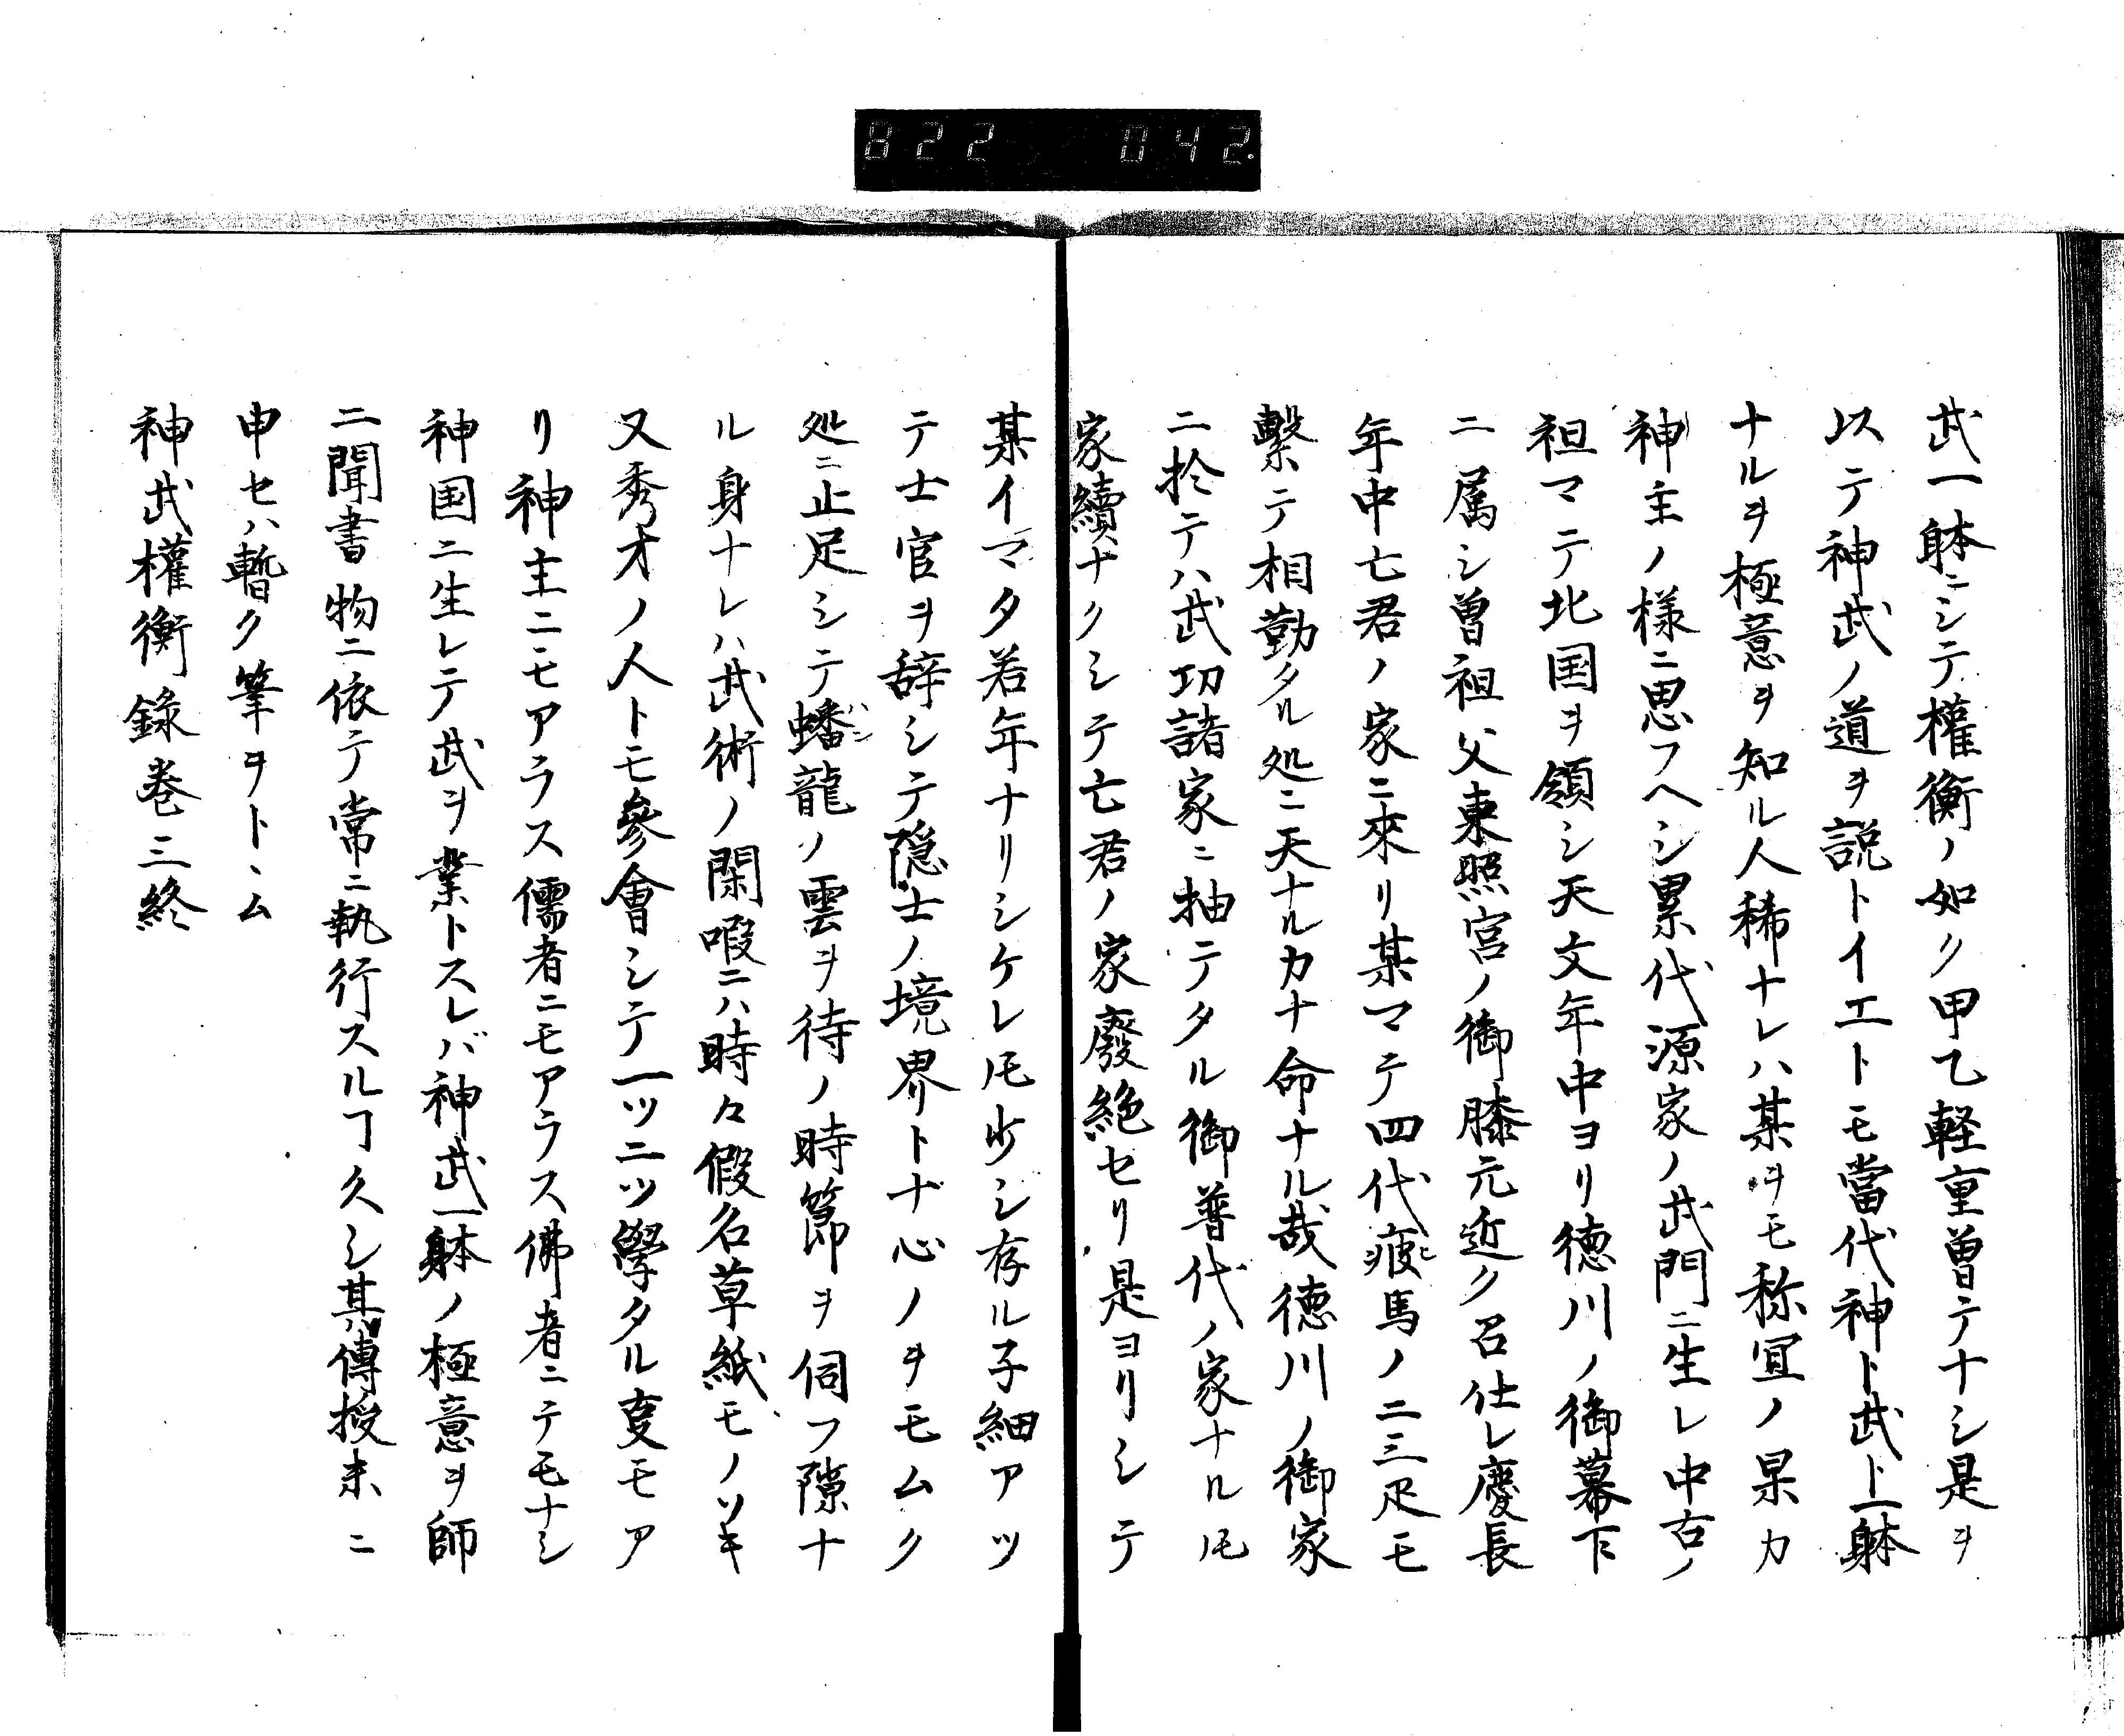 822 042.
武一躰ニシテ權衡ノ如ク甲乙軽重曽テナシ是ヲ
以テ神武ノ道ヲ説トイエトモ當代神ト武ト一躰
ナルヲ極意ヲ知ル人稀ナレハ某ヲモ称冝ノ果カ
神主ノ様ニ思フヘシ累代源家ノ武門ニ生レ中古ノ
祖マテ北国ヲ領シ天文年中ヨリ徳川ノ御幕下
ニ属シ曽祖父東照宮ノ御膝元近ク召仕レ慶長
年中七君ノ家ニ來リ某マテ四代疲馬ノ二三疋モ
繫テ相勤タル処ニ天ナルカナ命ナル哉徳川ノ御家
ニ於テハ武功諸家ニ抽テタル御普代ノ家ナルㇳモ
家續ナクシテ亡君ノ家廢絶セリ是ヨリシテ
某イマタ若年ナリシケレㇳモ少シ存ル子細アツ
テ士官ヲ辞シテ隠士ノ境界トナ心ノヲモムク
処ニ止足シテ蟠龍ノ雲ヲ待ノ時節ヲ伺フ隙ナ
ル身ナレハ武術ノ閑暇ニハ時々假名草紙モノソキ
又秀才ノ人トモ參會シテ一ツ二ツ學タル㕝モア
リ神主ニモアラス儒者ニモアラス佛者ニテモナシ
神国ニ生レテ武ヲ業トスレバ神武一躰ノ極意ヲ師
ニ聞書物ニ依テ常ニ執行スルヿ久シ其傳授末ニ
申セハ暫ク筆ヲトヽム
神武權衡錄巻三終